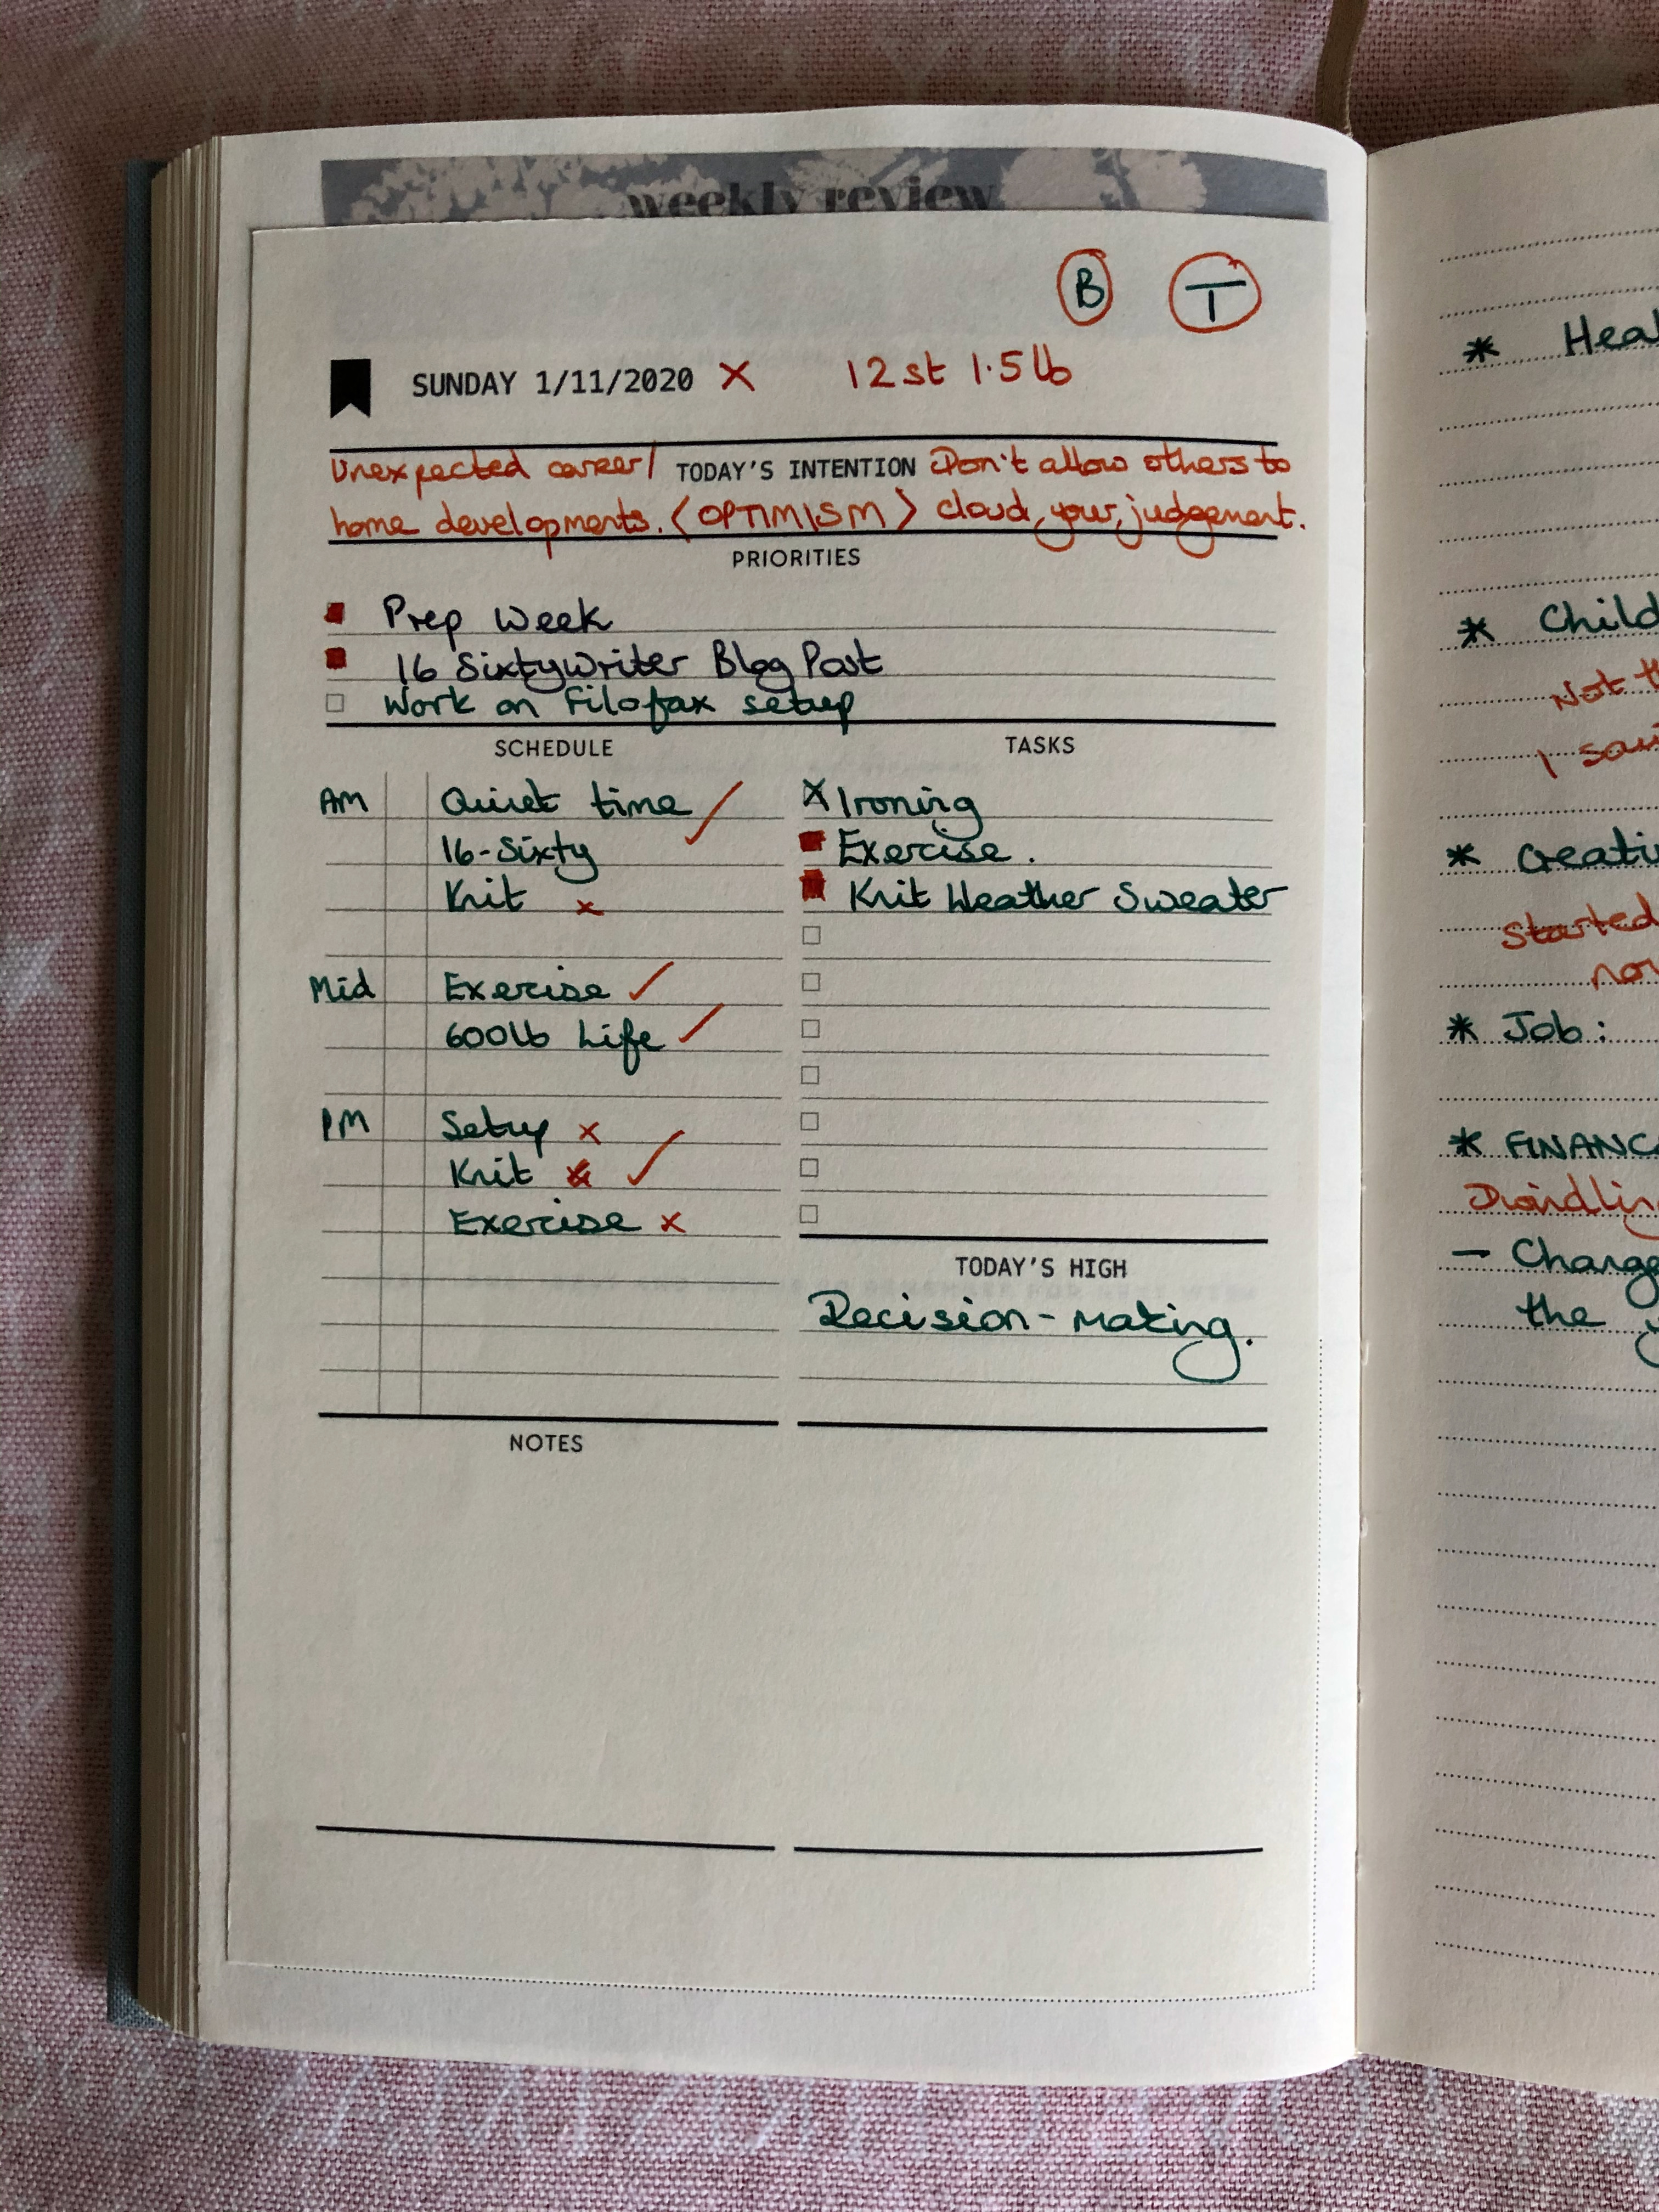 weekly review
B T
SUNDAY 1/11/2020 X 12st 1.5lb
Unexpected career/ TODAY'S INTENTION Don't allow others to
home developments. <OPTIMISM> cloud your judgement.
PRIORITIES
Prep Week
16 SixtyWriter Blog Post
Work on Filofax setup
SCHEDULE
AM Quiet time ✓
16-Sixty
Knit x
Mid Exercise ✓
600lb Life ✓
PM Setup x
Knit x ✓
Exercise x
TASKS
X Ironing
Exercise.
Knit Weather Sweater
TODAY'S HIGH
Decision-Making.
NOTES
* Heal
* Child
Not th
I sou
* Creati
Started
nov
* Job:
* FINANC
Dwindling
- Change
the y